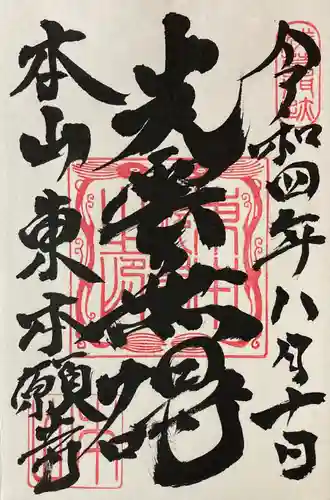 令和四年八月十日
光雲無碍
本山東本願寺